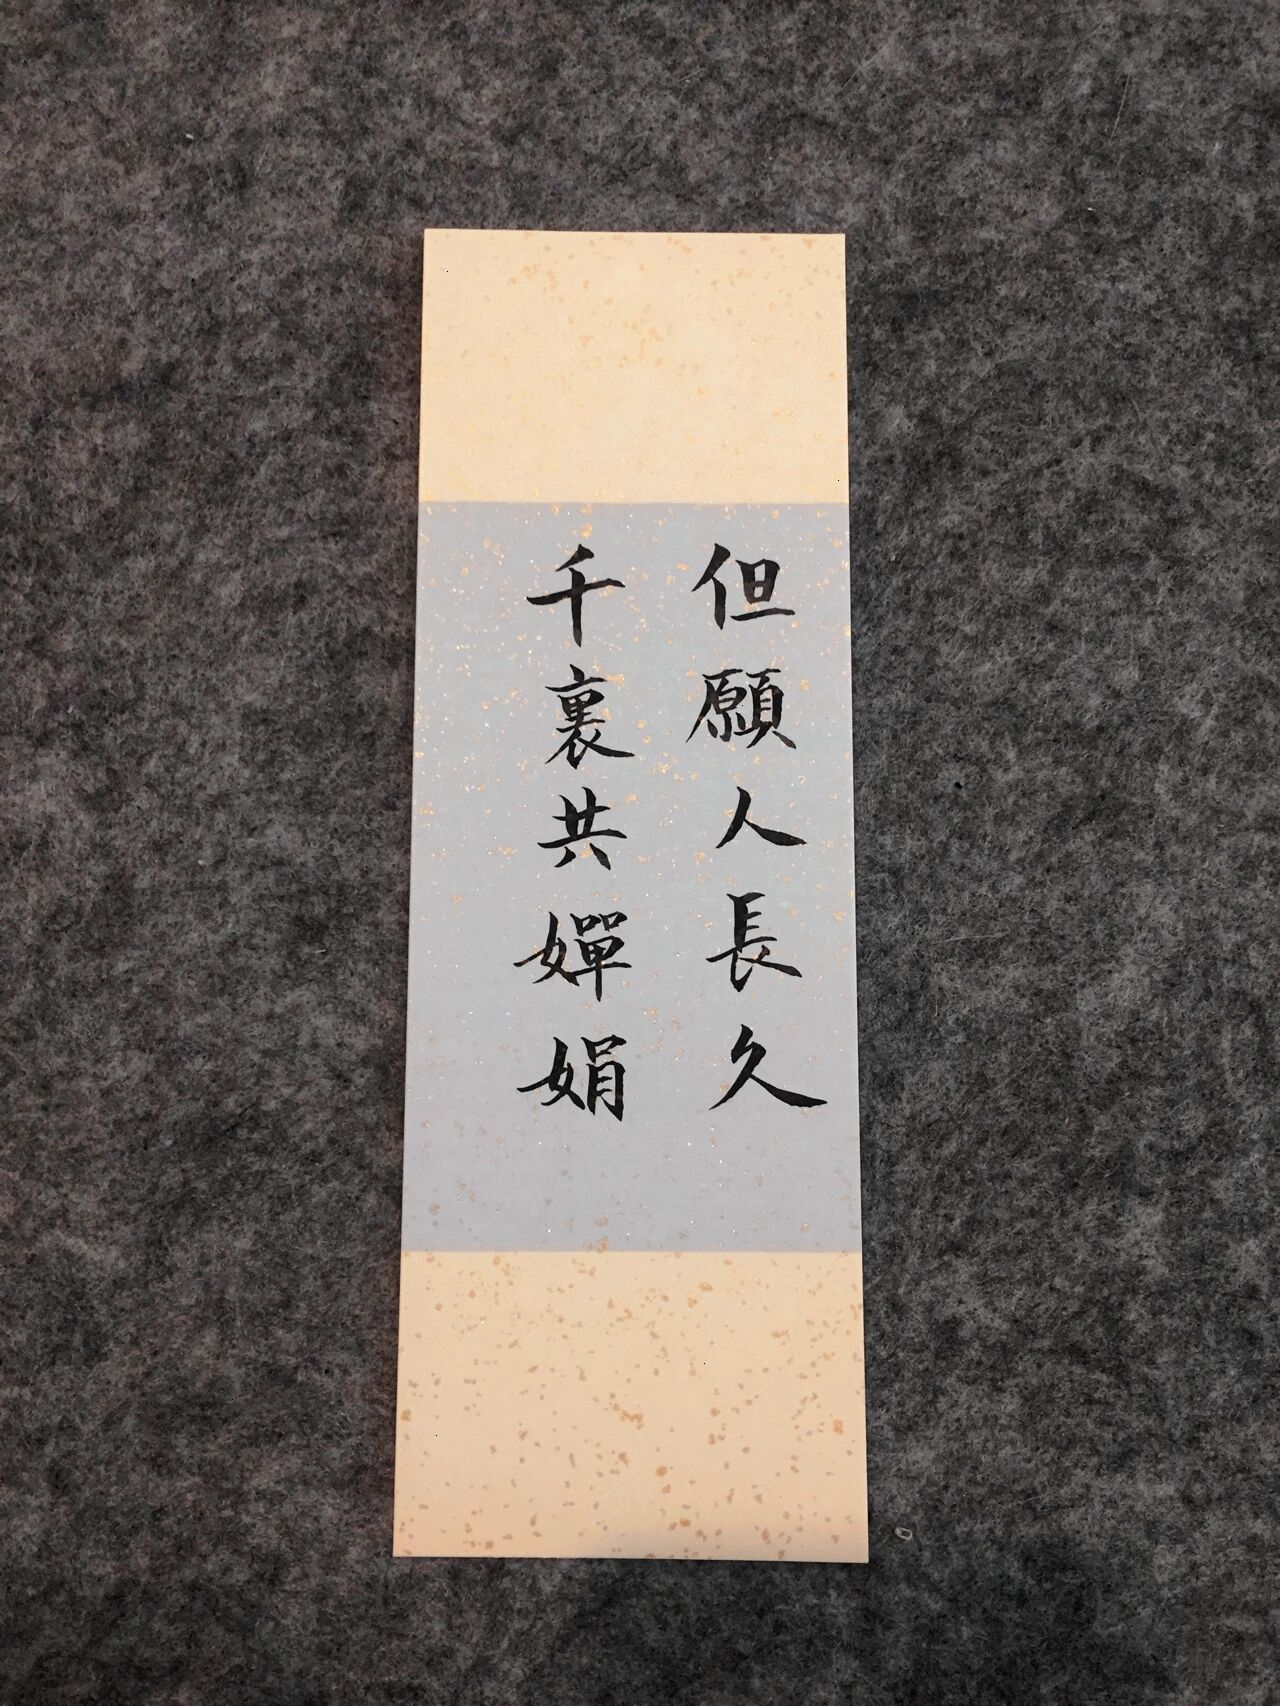 但願人長久
千裏共嬋娟